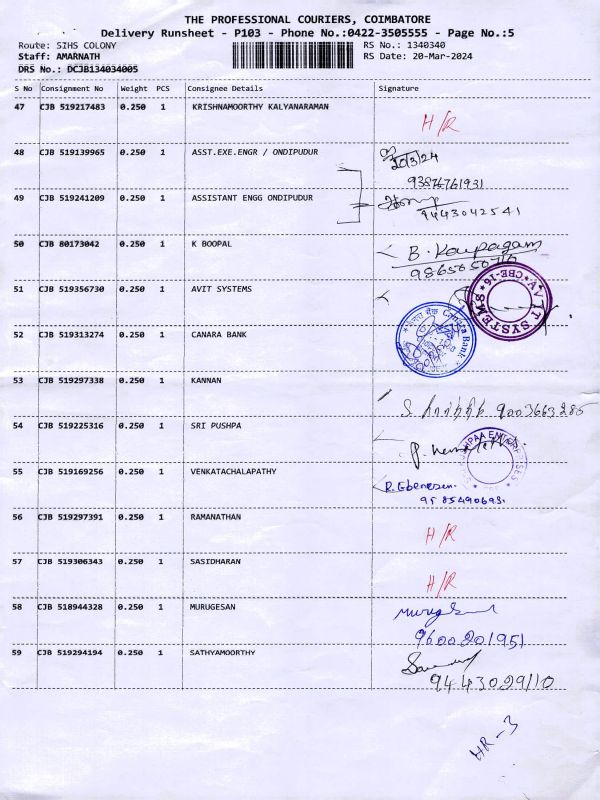 THE PROFESSIONAL COURIERS, COIMBATORE
Delivery Runsheet - P103 - Phone No.:0422-3505555 - Page No.:5
Route: SIHS COLONY RS No.: 1340340
Staff: AMARNATH RS Date: 20-Mar-2024
DRS No.: DCJB134034005
S No Consignment No Weight PCS Consignee Details Signature
47 CJB 519217483 0.250 1 KRISHNAMOORTHY KALYANARAMAN
H/R
48 CJB 519139965 0.250 1 ASST.EXE.ENGR / ONDIPUDUR
20/3/24
93876761931
49 CJB 519241209 0.250 1 ASSISTANT ENGG ONDIPUDUR
9443042541
50 CJB 80173042 0.250 1 K BOOPAL
B. Karpagam
51 CJB 519356730 0.250 1 AVIT SYSTEMS
AVIT SYSTEMS * CBE-16 *
52 CJB 519313274 0.250 1 CANARA BANK
Canara Bank
53 CJB 519297338 0.250 1 KANNAN
S. 9003663285
54 CJB 519225316 0.250 1 SRI PUSHPA
P.
55 CJB 519169256 0.250 1 VENKATACHALAPATHY
R. Ebenesen.
9585490693.
56 CJB 519297391 0.250 1 RAMANATHAN
H/R
57 CJB 519306343 0.250 1 SASIDHARAN
H/R
58 CJB 518944328 0.250 1 MURUGESAN
Muruges
9600201951
59 CJB 519294194 0.250 1 SATHYAMOORTHY
9443029110
HR-3